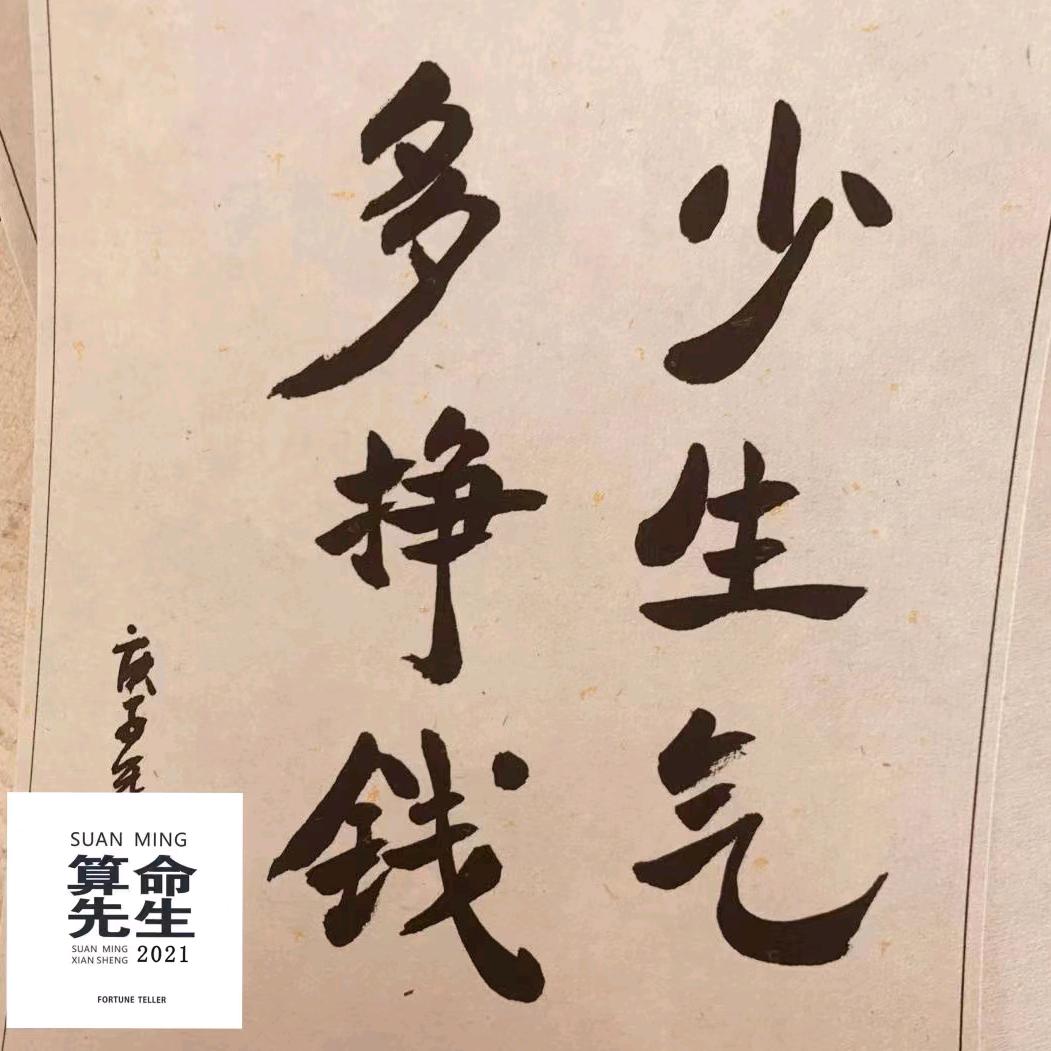 少生气
多挣钱
庚子年
SUAN MING
算命
先生
SUAN MING
XIAN SHENG
2021
FORTUNE TELLER